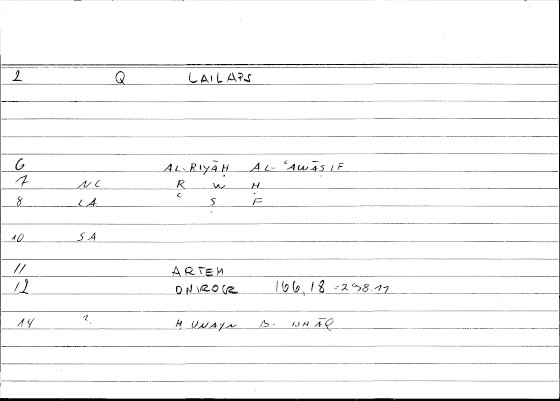 2 Q LAILAPS
6 AL-RIYĀḤ AL-ʿAWĀṢIF
7 NC R W Ḥ
8 LA ʿ Ṣ F
10 SA
11 ARTEM
12 ONIROCR 166,18 = 298.11
14 2. ḤUNAYN B. ISḤĀQ